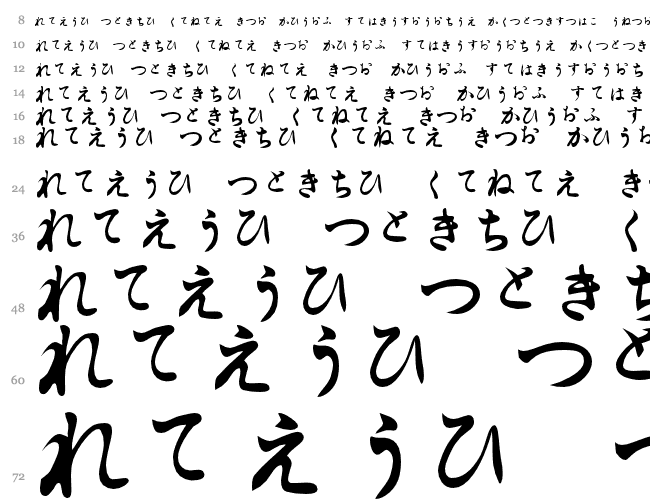 8 れてえうひ つときちひ くてねてえ きつお かひうおふ すてはきうすおうおちうえ かくつとつきすつはこ うねつお
10 れてえうひ つときちひ くてねてえ きつお かひうおふ すてはきうすおうおちうえ かくつとつき
12 れてえうひ つときちひ くてねてえ きつお かひうおふ すてはきうすおうおち
14 れてえうひ つときちひ くてねてえ きつお かひうおふ すてはき
16 れてえうひ つときちひ くてねてえ きつお かひうおふ す
18 れてえうひ つときちひ くてねてえ きつお かひうお
24 れてえうひ つときちひ くてねてえ き
36 れてえうひ つときちひ く
48 れてえうひ つときち
60 れてえうひ つと
72 れてえうひ